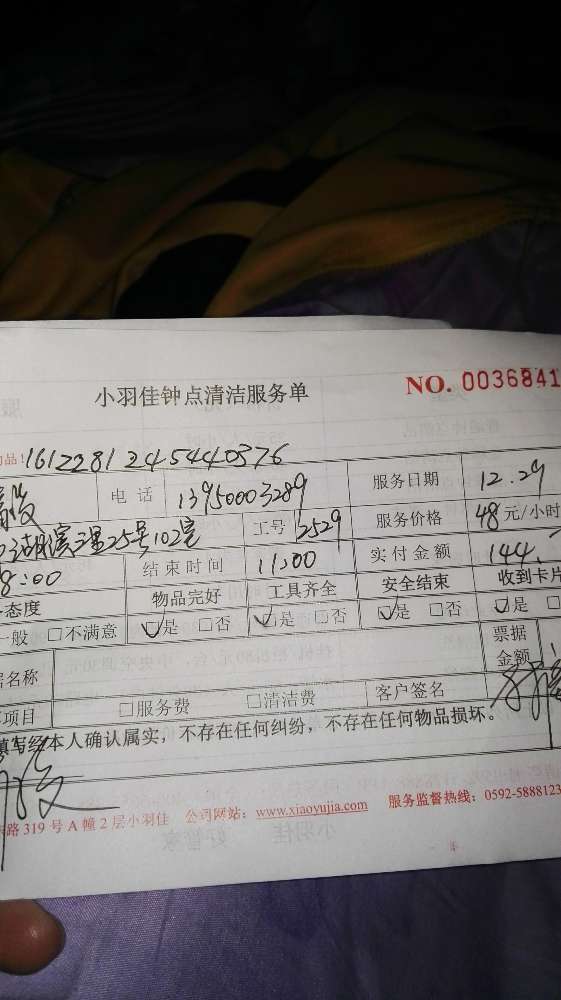 小羽佳钟点清洁服务单
NO. 0036841
品!1612281245440376
电话 13950003289 服务日期 12.29
湖滨三里25号102室 工号 2529 服务价格 48元/小时
8:00 结束时间 11:00 实付金额 144.
态度 物品完好 □工具齐全 安全结束 收到卡片
一般 □不满意 ☑是 □否 ☑是 □否 ☑是 □否 ☑是
名称 票据金额
项目 □服务费 □清洁费 客户签名
填写经本人确认属实,不存在任何纠纷,不存在任何物品损坏。
路319号A幢2层小羽佳 公司网站:www.xiaoyujia.com 服务监督热线:0592-5888123